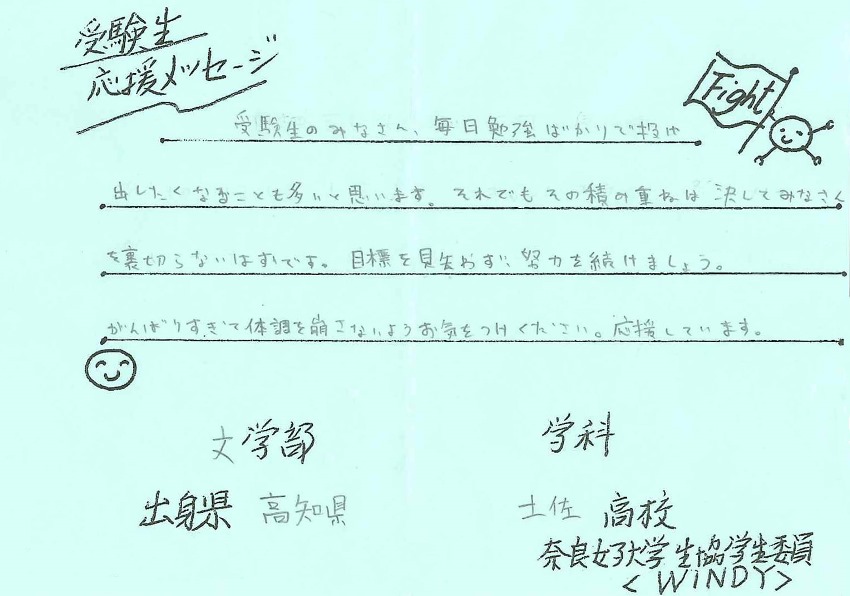 受験生
応援メッセージ
Fight
受験生のみなさん、毎日勉強ばかりで投げ
出したくなることも多いと思います。それでもその積み重ねは決してみなさん
を裏切らないはずです。目標を見失わず、努力を続けましょう。
がんばりすぎて体調を崩さないようお気をつけください。応援しています。
文学部 学科
出身県 高知県 土佐 高校
奈良女子大学生協学生委員
<WINDY>